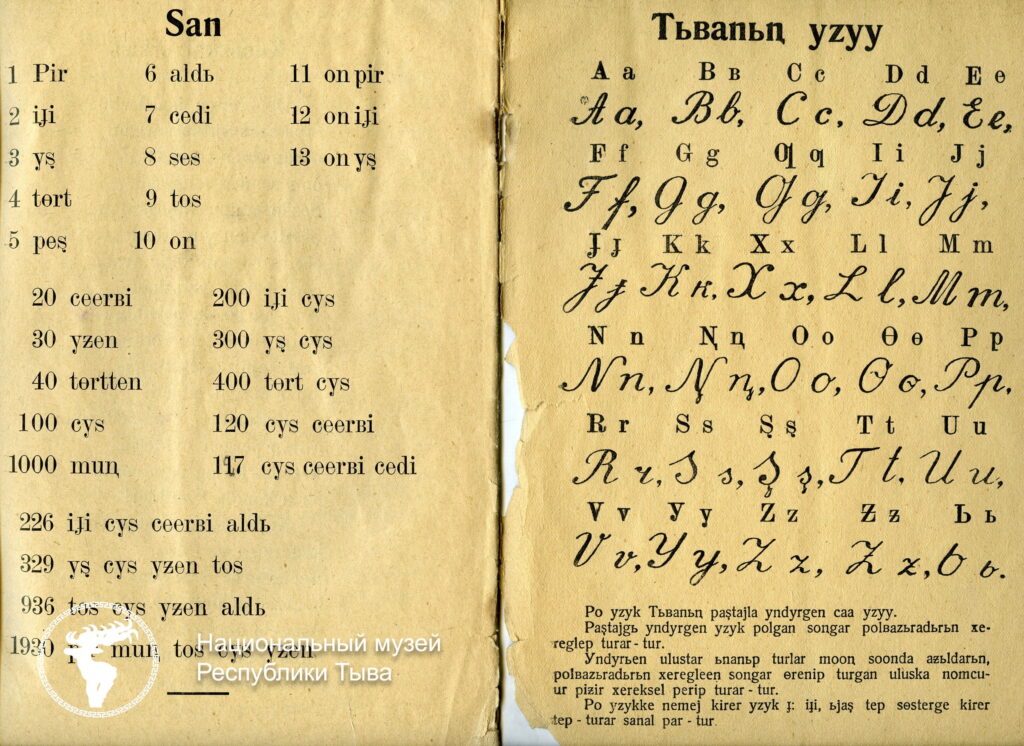 San
1 Pir 6 aldь 11 on pir
2 iɉi 7 cedi 12 on iɉi
3 yş 8 ses 13 on yş
4 tɵrt 9 tos
5 peş 10 on
20 ceerʙi 200 iɉi cys
30 yƶen 300 yş cys
40 tɵrtten 400 tɵrt cys
100 cys 120 cys ceerʙi
1000 muꞑ 117 cys ceerʙi cedi
226 iɉi cys ceerʙi aldь
329 yş cys yƶen tos
936 tos cys yƶen aldь
1930 muꞑ tos cys yƶen
Национальный музей
Республики Тыва
Tьʙanьꞑ yzyy
A a B ʙ C c D d E e
Aa, Bb, Cc, Dd, Ee,
F f G g Ƣ ƣ I i J j
Ff, Gg, Ƣƣ, Ii, Jj,
Ɉ ɉ K k X x L l M m
Ɉɉ Kk, Xx, Ll, Mm,
N n Ꞑ ꞑ O o Ɵ ɵ P p
Nn, Ꞑꞑ, Oo, Ɵɵ, Pp,
R r S s Ş ş T t U u
Rr, Ss, Şş, Tt, Uu,
V v Y y Z z Ƶ ƶ Ь ь
Vv, Yy, Zz, Ƶƶ, Ьь.
Po yzyk Tьʙanьꞑ paştajla yndyrgen caa yzyy.
Paştajgь yndyrgen yzyk polgan songar polʙazьradьrьn xe-
reglep turar-tur.
Yndyrьen ulustar ьnanьp turlar mooꞑ soonda aƶьldarьn,
polʙazьradьrьn xeregleen songar ɵrenip turgan uluska nomcu-
ur piƶir xereksel perip turar-tur.
Po yzykke nemej kirer yzyk ɉ: iɉi, ьjaş tep sɵsterge kirer
tep-turar sanal par-tur.